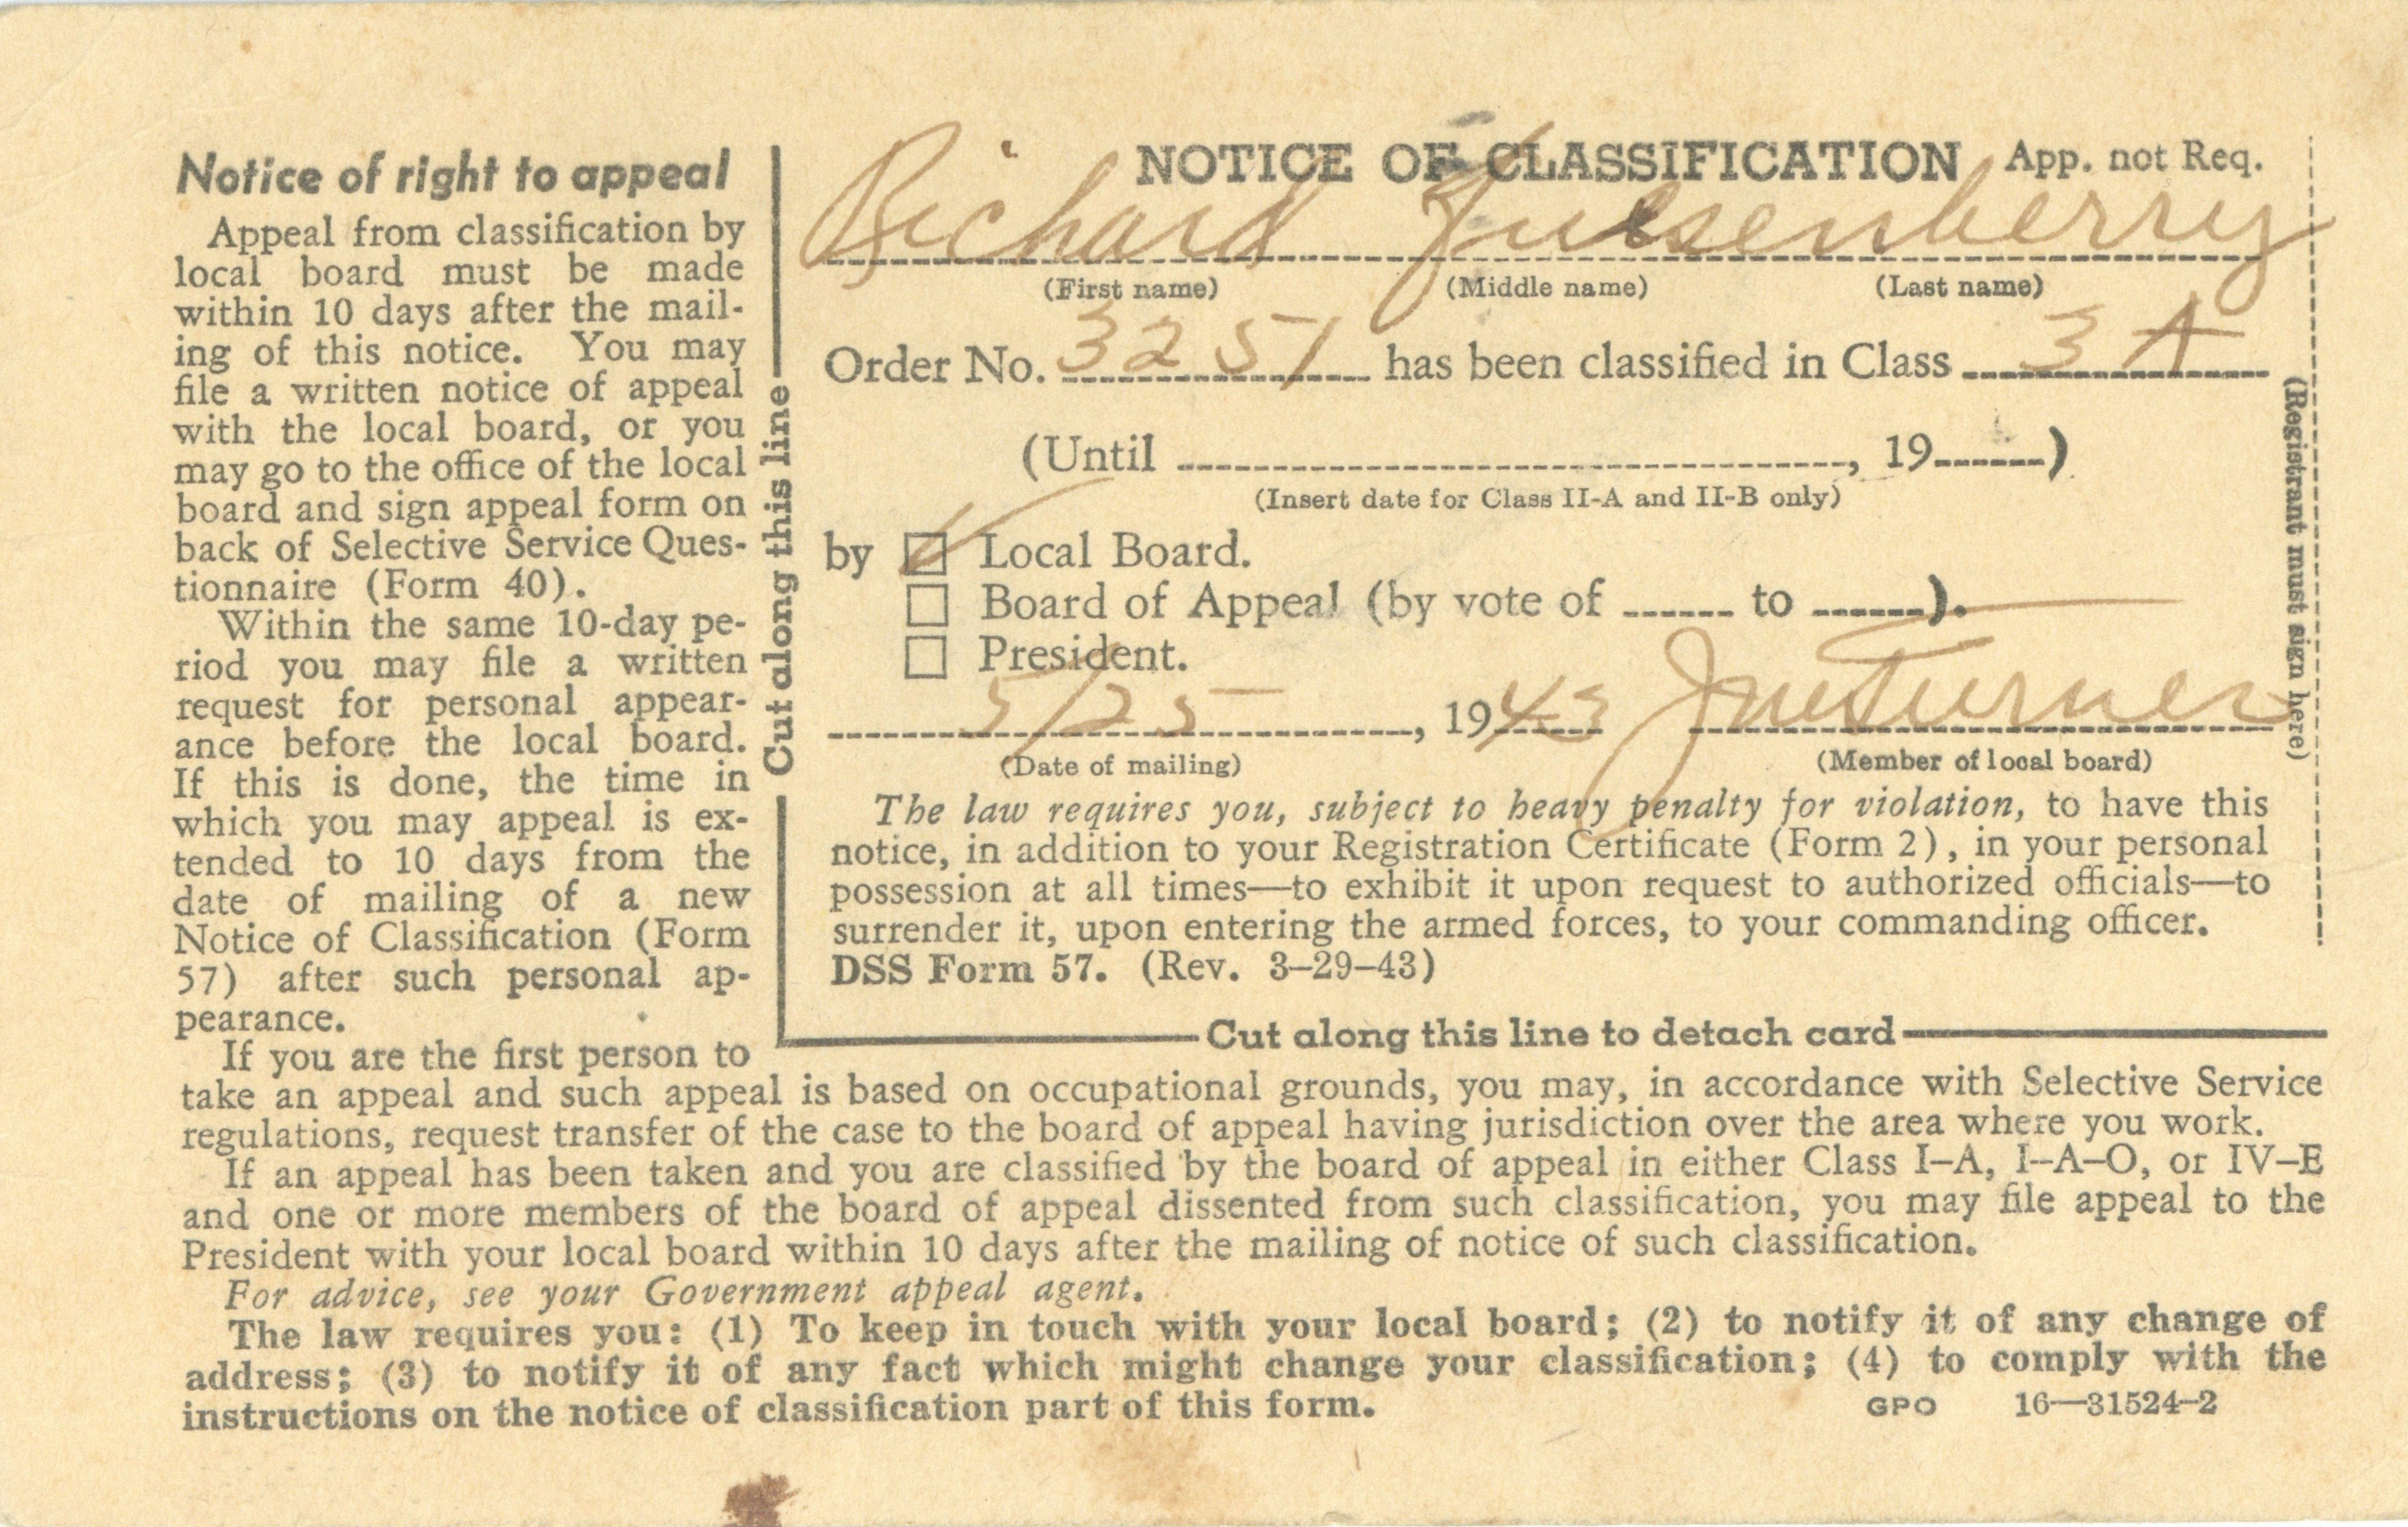 Notice of right to appeal
Appeal from classification by
local board must be made
within 10 days after the mail-
ing of this notice. You may
file a written notice of appeal
with the local board, or you
may go to the office of the local
board and sign appeal form on
back of Selective Service Ques-
tionnaire (Form 40).
Within the same 10-day pe-
riod you may file a written
request for personal appear-
ance before the local board.
If this is done, the time in
which you may appeal is ex-
tended to 10 days from the
date of mailing of a new
Notice of Classification (Form
57) after such personal ap-
pearance.
If you are the first person to
take an appeal and such appeal is based on occupational grounds, you may, in accordance with Selective Service
regulations, request transfer of the case to the board of appeal having jurisdiction over the area where you work.
If an appeal has been taken and you are classified by the board of appeal in either Class I–A, I–A–O, or IV–E
and one or more members of the board of appeal dissented from such classification, you may file appeal to the
President with your local board within 10 days after the mailing of notice of such classification.
For advice, see your Government appeal agent.
The law requires you: (1) To keep in touch with your local board; (2) to notify it of any change of
address; (3) to notify it of any fact which might change your classification; (4) to comply with the
instructions on the notice of classification part of this form.
GPO 16—31524-2
Cut along this line
NOTICE OF CLASSIFICATION App. not Req.
Richard Quesenberry
(First name) (Middle name) (Last name)
Order No. 3251 has been classified in Class 3A
(Until , 19 )
(Insert date for Class II-A and II-B only)
by Local Board.
Board of Appeal (by vote of to ).
President.
5/25, 1943 Turner
(Date of mailing) (Member of local board)
The law requires you, subject to heavy penalty for violation, to have this
notice, in addition to your Registration Certificate (Form 2), in your personal
possession at all times—to exhibit it upon request to authorized officials—to
surrender it, upon entering the armed forces, to your commanding officer.
DSS Form 57. (Rev. 3–29–43)
Cut along this line to detach card
(Registrant must sign here)